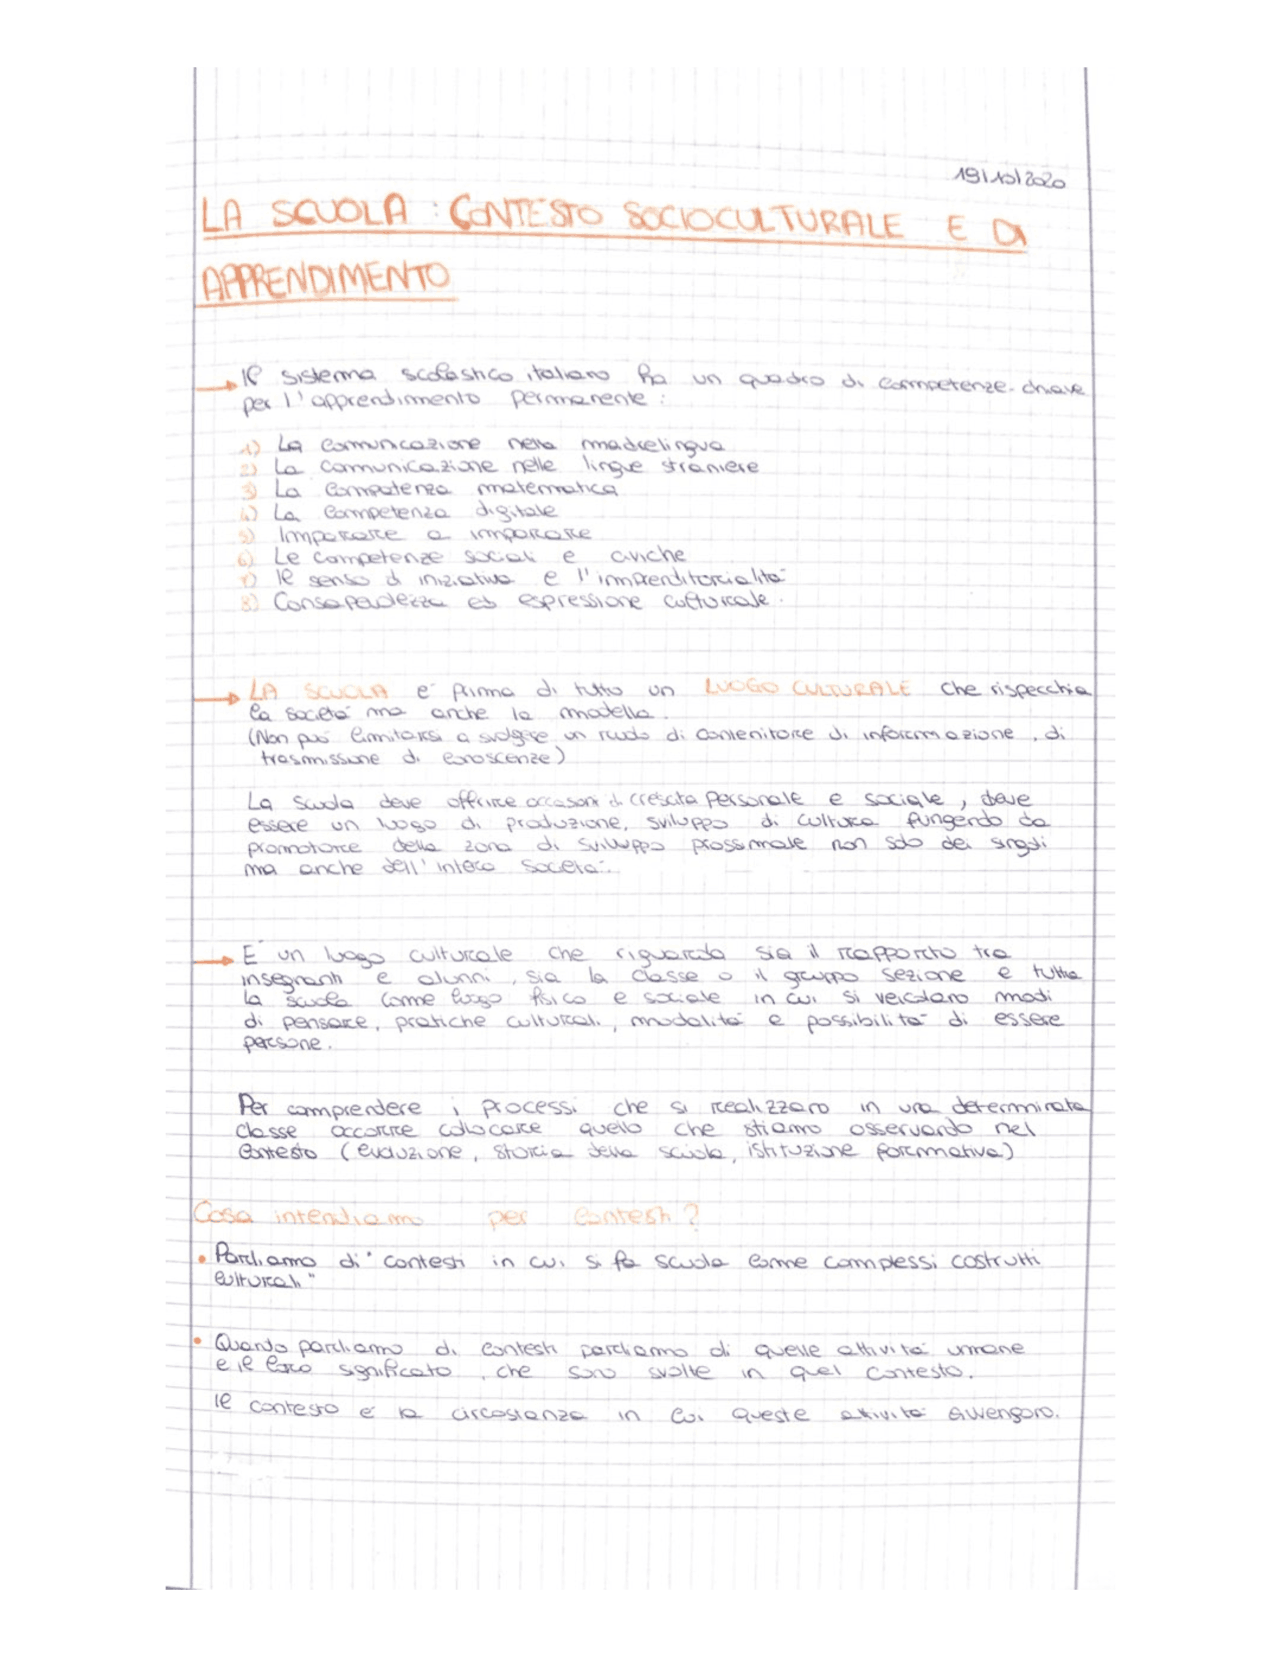 19/10/2020
LA SCUOLA : CONTESTO SOCIOCULTURALE E DI
APPRENDIMENTO
→ Il sistema scolastico italiano ha un quadro di competenze-chiave
per l'apprendimento permanente :
1) La comunicazione nella madrelingua
2) La comunicazione nelle lingue straniere
3) La competenza matematica
4) La competenza digitale
5) Imparare a imparare
6) Le competenze sociali e civiche
7) Il senso di iniziativa e l'imprenditorialità
8) Consapevolezza ed espressione culturale.
→ LA SCUOLA è prima di tutto un LUOGO CULTURALE che rispecchia
la società ma anche la modella.
(Non può limitarsi a svolgere un ruolo di contenitore di informazione, di
trasmissione di conoscenze)
La scuola deve offrire occasioni di crescita personale e sociale, deve
essere un luogo di produzione, sviluppo di cultura fungendo da
promotore della zona di sviluppo prossimale non solo dei singoli
ma anche dell'intera società.
→ È un luogo culturale che riguarda sia il rapporto tra
insegnanti e alunni, sia la classe o il gruppo sezione e tutta
la scuola come luogo fisico e sociale in cui si veicolano modi
di pensare, pratiche culturali, modalità e possibilità di essere
persone.
Per comprendere i processi che si realizzano in una determinata
classe occorre collocare quello che stiamo osservando nel
contesto (evoluzione, storia della scuola, istituzione formativa)
Cosa intendiamo per contesti?
• Parliamo di "contesti in cui si fa scuola come complessi costrutti
culturali"
• Quando parliamo di contesti parliamo di quelle attività umane
e il loro significato, che sono svolte in quel contesto.
Il contesto è la circostanza in cui queste attività avvengono.